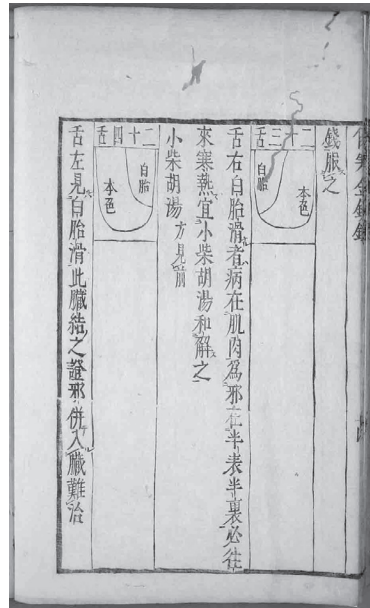 錢服之
二十三舌
本色
白胎
舌右白胎滑者病在肌肉爲邪在半表半裏必往
來寒熱宜小柴胡湯和解之
小柴胡湯 方見前
二十四舌
白胎
本色
舌左見白胎滑此臟結之證邪併入臟難治